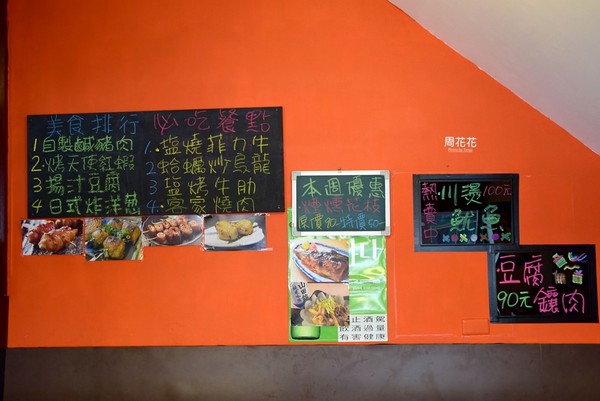 美食排行
1 自製鹹豬肉
2. 烤天使紅蝦
3 揚汁豆腐
4 日式炸洋蔥
必吃餐點
1. 鹽燒菲力牛
2 蛤蠣炒烏龍
3 鹽烤牛肋
4. 客家燒肉
本週優惠
煙燻花枝
原價90 特價60
止酒駕
飲酒過量
有害健康
周花花
熱賣中
川燙 100元
魷魚
豆腐
90元 鑲肉